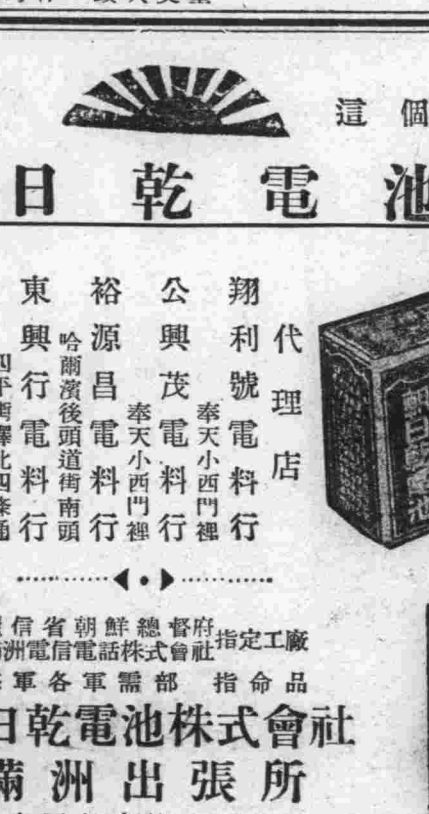 這個
日乾電池
代理店
翔利號電料行
奉天小西門裡
公興茂電料行
奉天小西門裡
裕源昌電料行
哈爾濱後頭道街南頭
東興行電料行
四平街驛北四條通
信省朝鮮總督府
洲電信電話株式會社
指定工廠
軍各軍需部 指命品
日乾電池株式會社
滿洲出張所